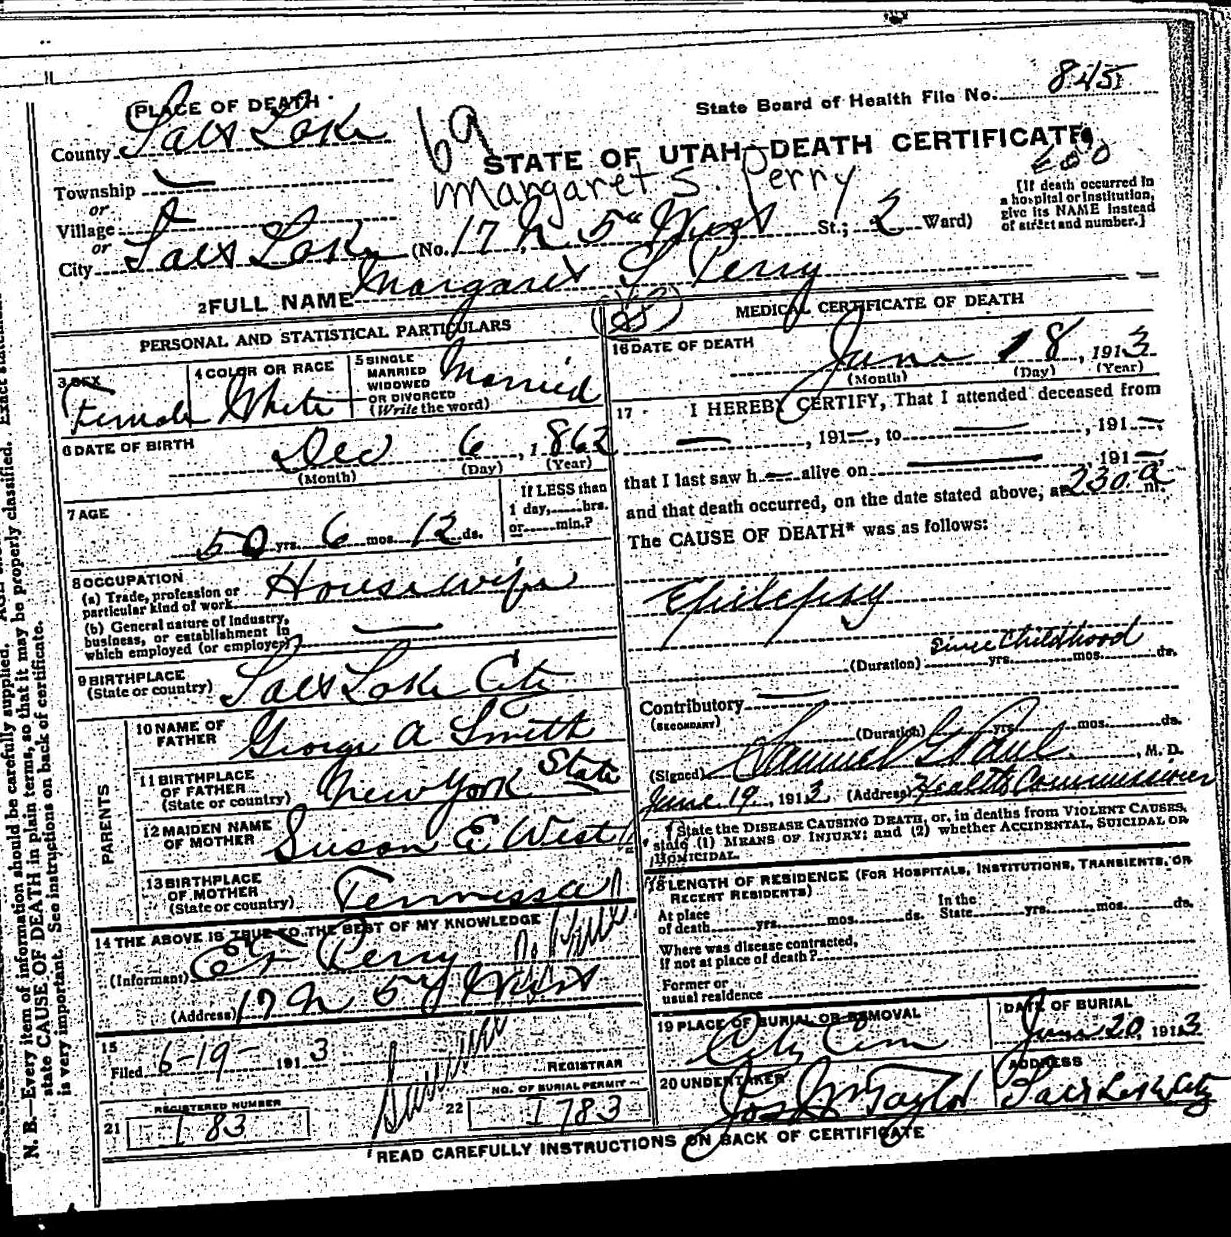 PLACE OF DEATH
State Board of Health File No. 845
County Salt Lake
69
STATE OF UTAH—DEATH CERTIFICATE
Township
Margaret S. Perry
or
Village
or
City Salt Lake (No. 17 N 5th West St.; 2 Ward)
[If death occurred in
a hospital or institution,
give its NAME instead
of street and number.]
2 FULL NAME Margaret S Perry
PERSONAL AND STATISTICAL PARTICULARS
3 SEX
Female
4 COLOR OR RACE
White
5 SINGLE
MARRIED
WIDOWED
OR DIVORCED
(Write the word)
Married
6 DATE OF BIRTH
Dec 6, 1862
(Month) (Day) (Year)
7 AGE
50 yrs. 6 mos. 12 ds.
If LESS than
1 day,......hrs.
or......min.?
8 OCCUPATION
(a) Trade, profession or
particular kind of work
Housewife
(b) General nature of industry,
business, or establishment in
which employed (or employer)
9 BIRTHPLACE
(State or country) Salt Lake City
PARENTS
10 NAME OF
FATHER George A Smith
11 BIRTHPLACE
OF FATHER
(State or country) New York State
12 MAIDEN NAME
OF MOTHER Susan E West
13 BIRTHPLACE
OF MOTHER
(State or country)
14 THE ABOVE IS TRUE TO THE BEST OF MY KNOWLEDGE
(Informant) Perry
(Address) 17 N 5th West
15
Filed 6-19- 1913
REGISTRAR
REGISTERED NUMBER
21
NO. OF BURIAL PERMIT
22 1783
MEDICAL CERTIFICATE OF DEATH
16 DATE OF DEATH
June 18, 1913
(Month) (Day) (Year)
17 I HEREBY CERTIFY, That I attended deceased from
—, 191—, to —, 191—,
that I last saw h— alive on — 191—
and that death occurred, on the date stated above, at 230 a m.
The CAUSE OF DEATH* was as follows:
Epilepsy
Since Childhood
(Duration) yrs. mos. ds.
Contributory
(SECONDARY)
(Duration) yrs. mos. ds.
(Signed) Samuel G Paul, M. D.
June 19, 1913 (Address) Health Commissioner
* State the DISEASE CAUSING DEATH, or, in deaths from VIOLENT CAUSES,
state (1) MEANS OF INJURY; and (2) whether ACCIDENTAL, SUICIDAL OR
HOMICIDAL.
18 LENGTH OF RESIDENCE (FOR HOSPITALS, INSTITUTIONS, TRANSIENTS, OR
RECENT RESIDENTS)
At place
of death yrs. mos. ds.
In the
State yrs. mos. ds.
Where was disease contracted,
if not at place of death?
Former or
usual residence
19 PLACE OF BURIAL OR REMOVAL
City Cem
DATE OF BURIAL
June 20, 1913
20 UNDERTAKER
Jos Wm Taylor
ADDRESS
Salt Lake City
READ CAREFULLY INSTRUCTIONS ON BACK OF CERTIFICATE
N. B.—Every item of information should be carefully supplied.
state CAUSE OF DEATH in plain terms, so that it may be properly classified. Exact
is very important. See instructions on back of certificate.